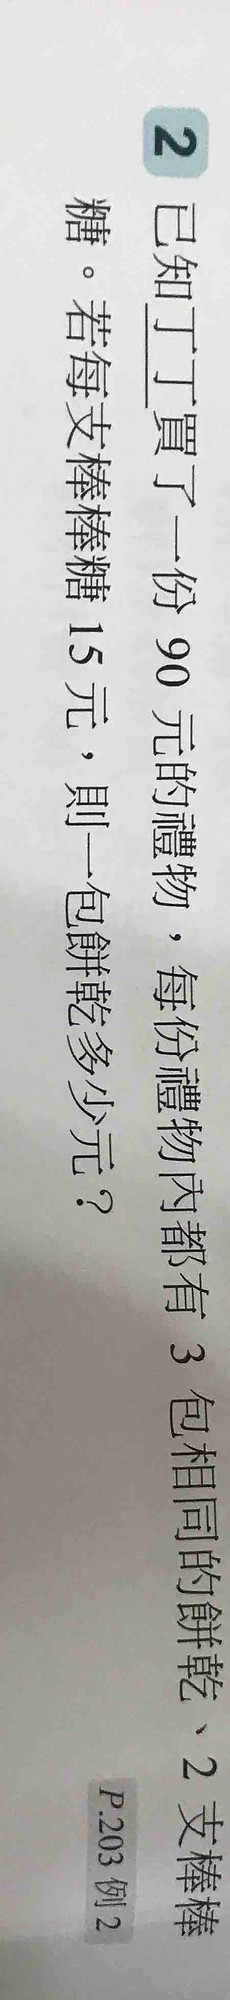 2 已知丁丁買了一份 90 元的禮物，每份禮物內都有 3 包相同的餅乾、2 支棒棒
糖。若每支棒棒糖 15 元，則一包餅乾多少元？
P.203 例 2